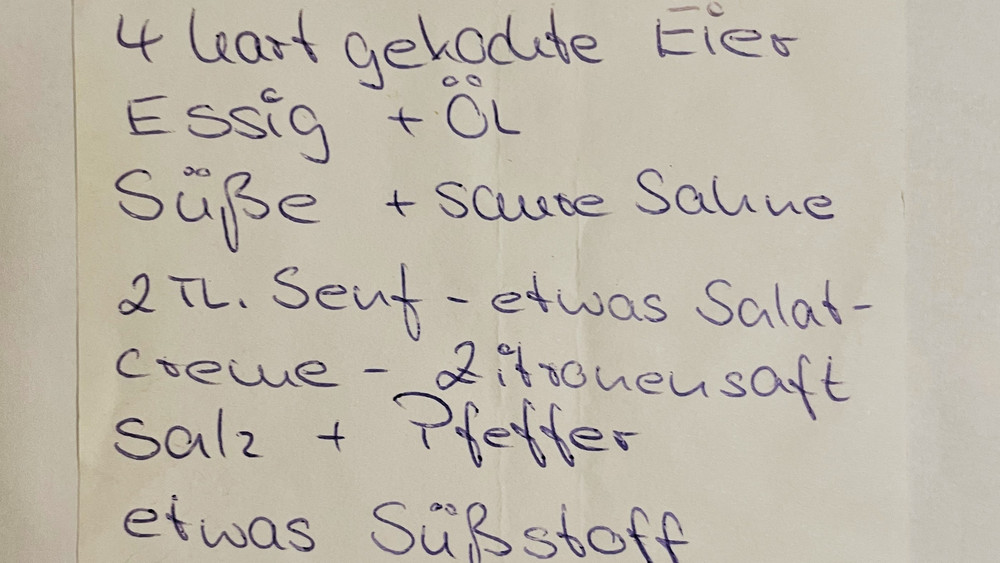 4 hart gekochte Eier
Essig + Öl
Süße + saure Sahne
2 TL. Senf - etwas Salat-
creme - Zitronensaft
Salz + Pfeffer
etwas Süßstoff